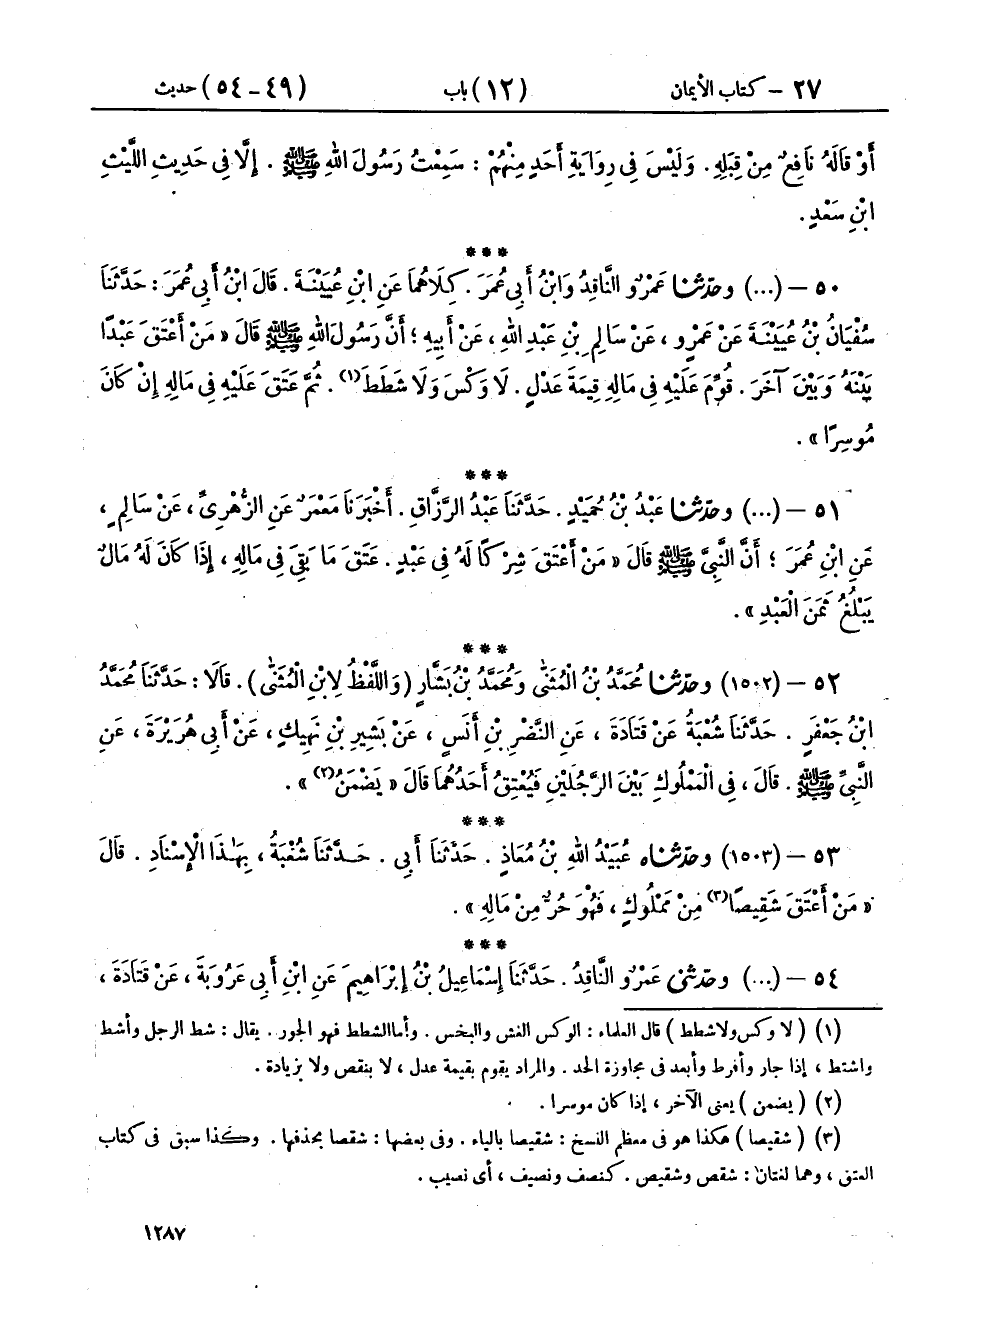 ٢٧ – كتاب الأيمان (١٢) باب (٤٩ – ٥٤) حديث
أَوْ قَالَهُ نَافِعٌ مِنْ قِبَلِهِ . وَلَيْسَ فِى رِوَايَةِ أَحَدٍ مِنْهُمْ : سَمِعْتُ رَسُولَ اللهِ ﷺ . إِلَّا فِى حَدِيثِ اللَّيْثِ
ابْنِ سَعْدٍ .
***
٥٠ – (...) وحدّثنا عَمْرٌو النَّاقِدُ وَابْنُ أَبِى عُمَرَ . كِلَاهُمَا عَنِ ابْنِ عُيَيْنَةَ . قَالَ ابْنُ أَبِى عُمَرَ : حَدَّثَنَا
سُفْيَانُ بْنُ عُيَيْنَةَ عَنْ عَمْرٍو ، عَنْ سَالِمِ بْنِ عَبْدِ اللهِ ، عَنْ أَبِيهِ ؛ أَنَّ رَسُولَ اللهِ ﷺ قَالَ « مَنْ أَعْتَقَ عَبْدًا
بَيْنَهُ وَبَيْنَ آخَرَ . قُوِّمَ عَلَيْهِ فِى مَالِهِ قِيمَةَ عَدْلٍ . لَا وَكْسَ وَلَا شَطَطَ(١) . ثُمَّ عَتَقَ عَلَيْهِ فِى مَالِهِ إِنْ كَانَ
مُوسِرًا » .
***
٥١ – (...) وحدّثنا عَبْدُ بْنُ حُمَيْدٍ . حَدَّثَنَا عَبْدُ الرَّزَّاقِ . أَخْبَرَنَا مَعْمَرٌ عَنِ الزُّهْرِىِّ ، عَنْ سَالِمٍ ،
عَنِ ابْنِ عُمَرَ ؛ أَنَّ النَّبِىَّ ﷺ قَالَ « مَنْ أَعْتَقَ شِرْكًا لَهُ فِى عَبْدٍ . عَتَقَ مَا بَقِىَ فِى مَالِهِ ، إِذَا كَانَ لَهُ مَالٌ
يَبْلُغُ ثَمَنَ الْعَبْدِ » .
***
٥٢ – (١٥٠٢) وحدّثنا مُحَمَّدُ بْنُ الْمُثَنَّى وَمُحَمَّدُ بْنُ بَشَّارٍ ( وَاللَّفْظُ لِابْنِ الْمُثَنَّى ) . قَالَا : حَدَّثَنَا مُحَمَّدُ
ابْنُ جَعْفَرٍ . حَدَّثَنَا شُعْبَةُ عَنْ قَتَادَةَ ، عَنِ النَّضْرِ بْنِ أَنَسٍ ، عَنْ بَشِيرِ بْنِ نَهِيكٍ ، عَنْ أَبِى هُرَيْرَةَ ، عَنِ
النَّبِىِّ ﷺ . قَالَ ، فِى الْمَمْلُوكِ بَيْنَ الرَّجُلَيْنِ فَيُعْتِقُ أَحَدُهُمَا قَالَ « يَضْمَنُ(٢) » .
***
٥٣ – (١٥٠٣) وحدّثناه عُبَيْدُ اللهِ بْنُ مُعَاذٍ . حَدَّثَنَا أَبِى . حَدَّثَنَا شُعْبَةُ ، بِهَٰذَا الْإِسْنَادِ . قَالَ
« مَنْ أَعْتَقَ شَقِيصًا(٣) مِنْ مَمْلُوكٍ ، فَهُوَ حُرٌّ مِنْ مَالِهِ » .
***
٥٤ – (...) وحدّثنى عَمْرٌو النَّاقِدُ . حَدَّثَنَا إِسْمَاعِيلُ بْنُ إِبْرَاهِيمَ عَنِ ابْنِ أَبِى عَرُوبَةَ ، عَنْ قَتَادَةَ ،
(١) ( لا وكس ولا شطط ) قال العلماء : الوكس النش والبخس . وأما الشطط فهو الجور . يقال : شط الرجل وأشط
واشتط ، إذا جار وأفرط وأبعد فى مجاوزة الحد . والمراد يقوم بقيمة عدل ، لا بنقص ولا بزيادة .
(٢) ( يضمن ) يعنى الآخر ، إذا كان موسرا .
(٣) ( شقيصا ) هكذا هو فى معظم النسخ : شقيصا بالياء . وفى بعضها : شقصا بحذفها . وكذا سبق فى كتاب
العتق ، وهما لغتان : شقص وشقيص . كنصف ونصيف ، أى نصيب .
١٢٨٧